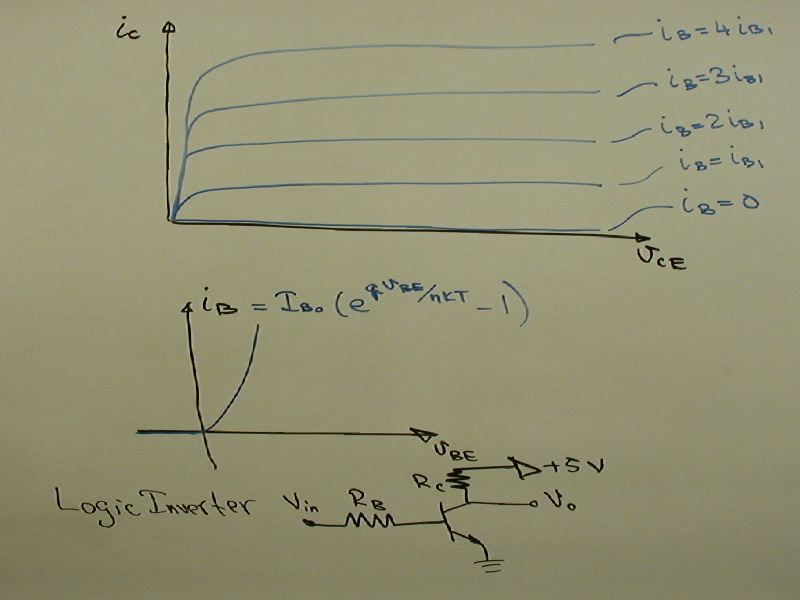 ic
iB=4iB1
iB=3iB1
iB=2iB1
iB=iB1
iB=0
VCE
iB = IBo (e^qVBE/nKT - 1)
VBE
+5V
Rc
Logic Inverter
Vin
RB
Vo